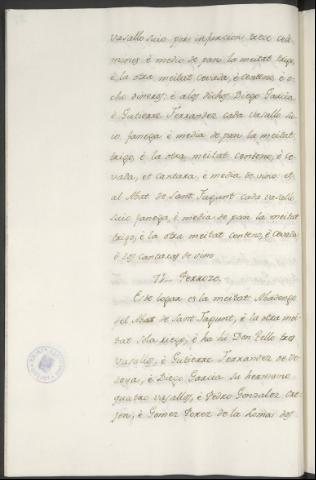 vasallo suio por infurcion trece cele
mines è medio de pan la meitat trigo,
è la otra meitat cevada, è centeno, è o-
cho dineros; è alos dichos Diego Garcia
è Gutierre Ferrandez cada vasallo su
io fanega è media de pan la meitat
trigo, è la otra meitat centeno, è ce-
vada, et cantara, è media de vino et
al Abat de Sant Fagunt cada vasallo
suio fanega, è media de pan la meitat
trigo, è la otra meitat centeno, è cevada
è dos cantaras de vino
Ferrozo.
Este logar es la meitat Abadengo
del Abat de Sant Fagunt, è la otra mei-
tat è ha hi Don Tello tres
vasallos, è Gutierre Ferrandez
è Diego Garcia su hermano
quatro vasallos, è Pedro Gonzalez
è Gomez Perez de la Loma dos